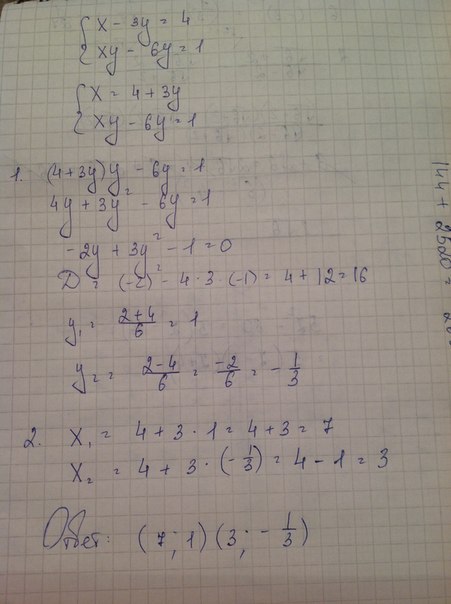 x - 3y = 4
xy - 6y = 1
x = 4 + 3y
xy - 6y = 1
1. (4+3y)y - 6y = 1
4y + 3y² - 6y = 1
-2y + 3y² - 1 = 0
D = (-2)² - 4·3·(-1) = 4 + 12 = 16
y₁ = (2+4)/6 = 1
y₂ = (2-4)/6 = -2/6 = -1/3
2. x₁ = 4 + 3·1 = 4 + 3 = 7
x₂ = 4 + 3·(-1/3) = 4 - 1 = 3
Ответ: (7; 1) (3; -1/3)
144 + 2520 =